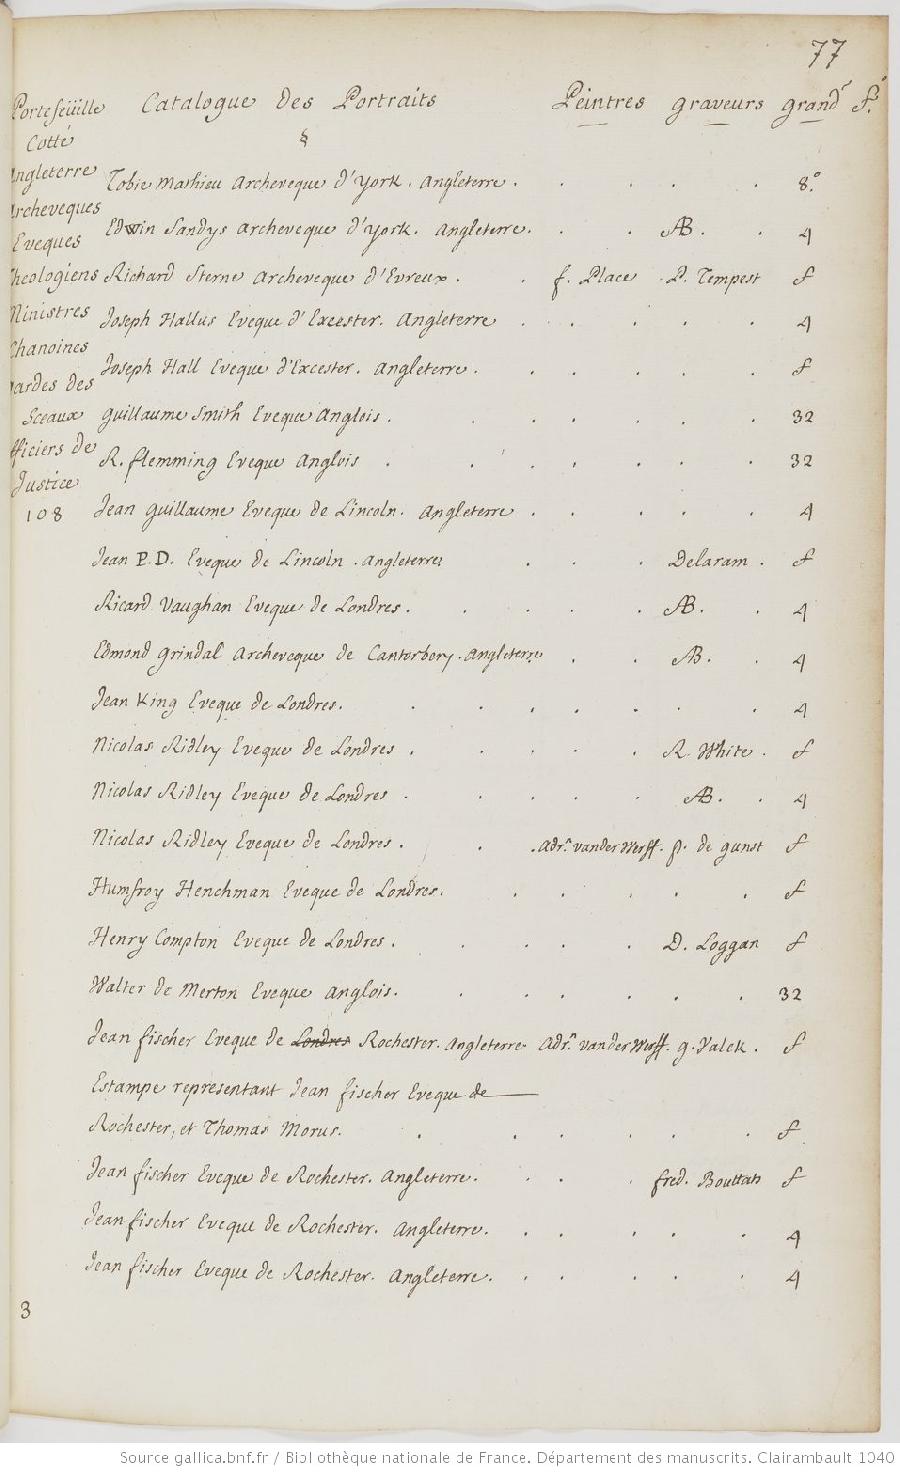 77
Portefeüille Catalogue des Portraits Peintres graveurs grandr fo.
Cotté §
Angleterre
Tobie Mathieu Archeveque d'York. Angleterre. 8.o
Archeveques
Edwin Sandys Archeveque d'York. Angleterre. AB. 4
Eveques
Theologiens Richard Sterne Archeveque d'Evreux. f. Place P. Tempest f
Ministres
Joseph Hallus Eveque d'Excester. Angleterre 4
Chanoines
Joseph Hall Eveque d'Excester. Angleterre. f
gardes des
Sceaux Guillaume Smith Eveque Anglois. 32
officiers de
R. flemming Eveque Anglois 32
Justice
108 Jean Guillaume Eveque de Lincoln. Angleterre 4
Jean P. D. Eveque de Lincoln. Angleterre Delaram. f
Ricard Vaughan Eveque de Londres. AB. 4
Edmond Grindal Archeveque de Cantorbery. Angleterre AB. 4
Jean King Eveque de Londres. 4
Nicolas Ridley Eveque de Londres R. White. f
Nicolas Ridley Eveque de Londres AB. 4
Nicolas Ridley Eveque de Londres. Adr.n vander Werff. p. de gunst f
Humfroy Henchman Eveque de Londres. f
Henry Compton Eveque de Londres. D. Loggan f
Walter de Merton Eveque Anglois. 32
Jean fischer Eveque de Londres Rochester. Angleterre Adr.n vander Werff. g. Valck. f
Estampe representant Jean fischer Eveque de
Rochester, et Thomas Morus. f
Jean fischer Eveque de Rochester. Angleterre. fred. Bouttats f
Jean fischer Eveque de Rochester. Angleterre. 4
Jean fischer Eveque de Rochester. Angleterre. 4
3
Source gallica.bnf.fr / Bibliothèque nationale de France. Département des manuscrits. Clairambault 1040